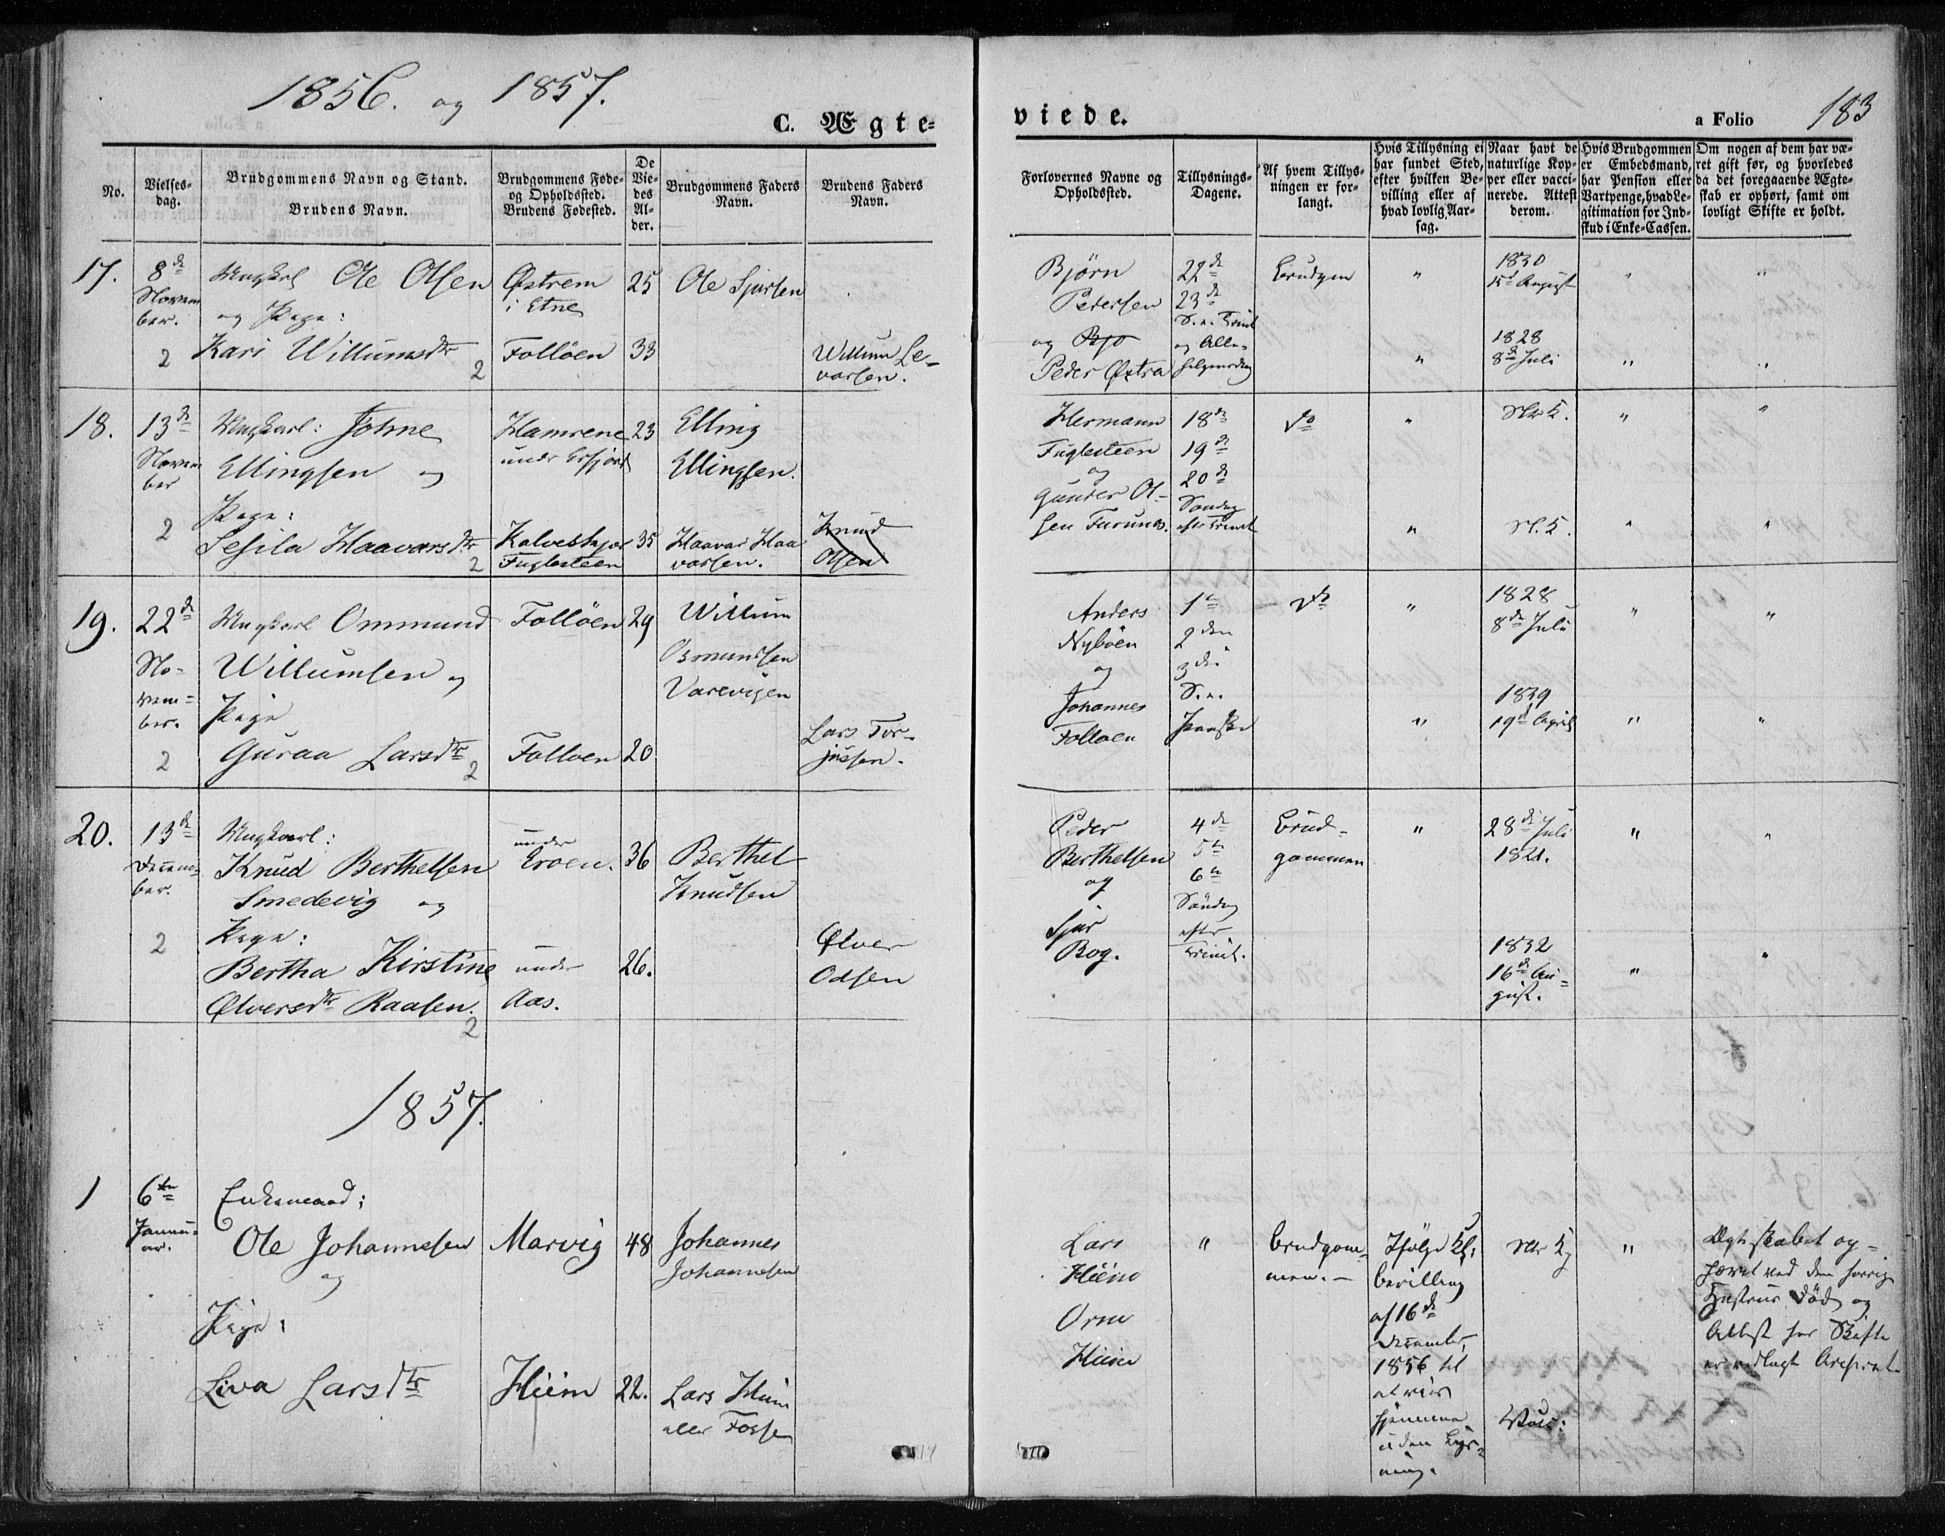 1856. og 1857.
C. Ægte-
viede.
a Folio 183
No.
Vielses-
dag.
Brudgommens Navn og Stand.
Brudens Navn.
Brudgommens Føde-
og Opholdssted.
Brudens Fødested.
De
Vie-
des
Al-
der.
Brudgommens Faders
Navn.
Brudens Faders
Navn.
Forlovernes Navne og
Opholdssted.
Tillysnings-
Dagene.
Af hvem Tillys-
ningen er for-
langt.
Hvis Tillysning ei
har fundet Sted,
efter hvilken Be-
villing eller af
hvad lovlig Aar-
sag.
Naar havt de
naturlige Kop-
per eller vacci-
nerede. Attest
derom.
Hvis Brudgommen
er Embedsmand,
har Pension eller
Vartpenge, hvad Le-
gitimation for Ind-
skud i Enke-Cassen.
Om nogen af dem har væ-
ret gift før, og hvorledes
da det foregaaende Ægte-
skab er ophørt, samt om
lovligt Skifte er holdt.
17.
8de
Novem
ber.
2
Ungkarl Ole Olsen
og Pige:
Kari Willumsdtr
2
Østrem
i Etne
Folløen
25
33
Ole Sjursen
Willum Le-
varsen.
Bjørn
Pedersen
og Bjo
Peder Østra
22de
23de
S. e. Trinit
og Alle-
helgensdag
Brudgom
"
"
1830
1828
8de Juli
"
"
"
"
18.
13de
Novem
ber
2
Ungkarl: Johne
Ellingsen og
Pige:
Sesila Haavarsdtr
2
Hamrene
under Erfjord
Kalveskjor
Fuglesteen
23
35
Elling
Ellingsen.
Haavar Haa
varsen.
Knud
Olsen
Hermann
Fuglesteen
og
Gunder Ol-
sen Furunes.
18de
19de
20de
Søndag
efter Trinit
do
"
"
"
"
"
"
19.
22de
No-
vem-
ber.
2
Ungkarl Ommund
Willumsen og
Pige
Guraa Larsdtr
2
Folløen
Folloen
29
20
Willum
Osmundsen
Varevigen
Lars Tor-
jussen.
Anders
Nyböen
og
Johannes
Folloen
1te
2den
3die
S. e.
do
"
"
1828
8de Juli
1839
19de April
"
"
"
"
20.
13de
Decem-
ber.
2
Ungkarl:
Knud Berthelsen
Smedevig og
Pige:
Bertha Kirstine
Ølversdtr Raasen.
2
under
Eroen.
under
Aas.
36
26.
Berthel
Knudsen
Ølver
Odsen
Peder
Berthelsen
og
Sjur
Bog.
4de
5te
6te
Søndag
efter
Trinit.
Brud-
gommen
"
28de Juli
1821.
1832
16de Au-
gust.
"
"
"
"
1857.
1
6te
Janu-
ar.
Enkemand:
Ole Johannesen
og
Pige:
Liva Larsdtr
Marvig
Hiim
48
22.
Johannes
Johannesen
Lars Hiim
eller Fosse
Lars
Hiim
Orm
Hiim
"
Brudgom-
men. -
Ifølge Kgl.
Bevilling
af 16de
December
1856 til
at vies
hjemme
uden Lys-
ning.
"
Ægteskabet op-
hævet ved den forrige
Hustrues Død og
Attest for Skifte
er vedlagt Archivet